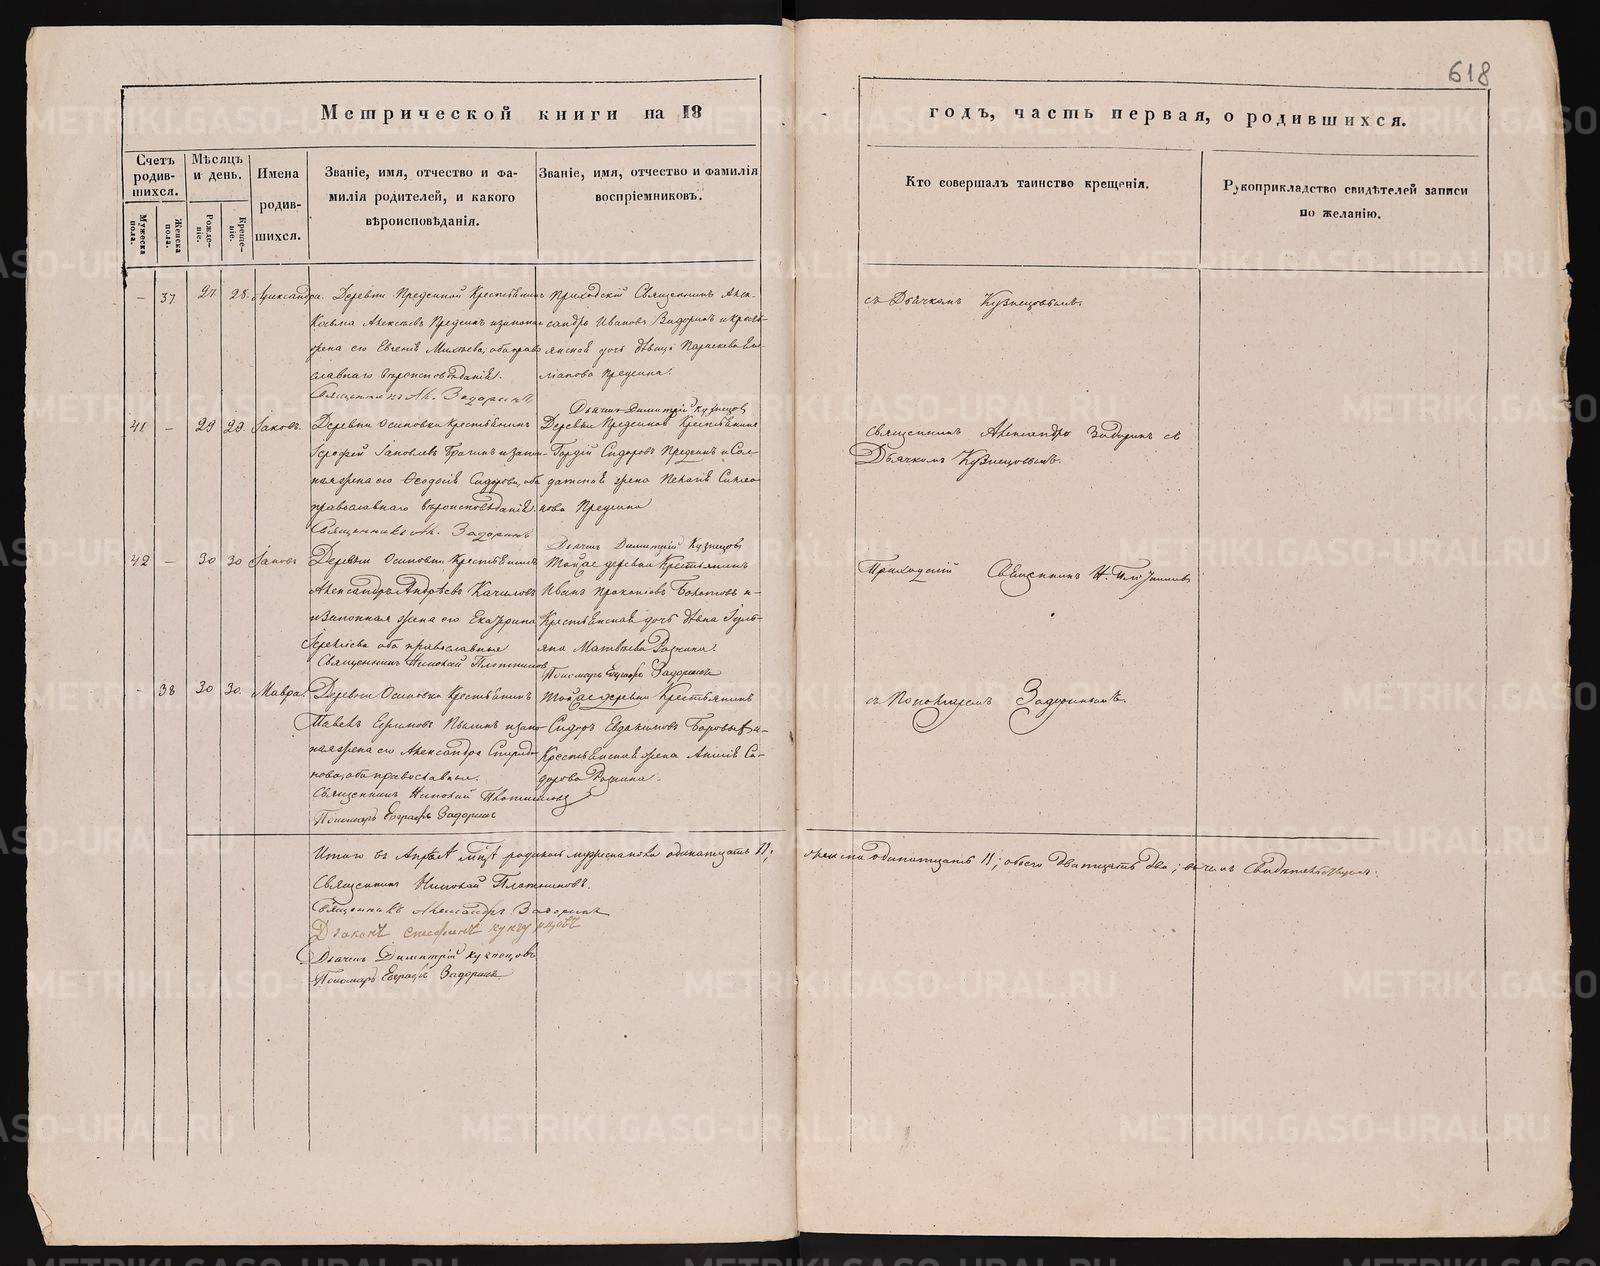 618
Метрической книги на 18
годъ, часть первая, о родившихся.
Счетъ родив-шихся.
Мужеска пола.
Женска пола.
Мѣсяцъ и день.
Рожде-ніе.
Креще-ніе.
Имена родив-шихся.
Званіе, имя, отчество и фа-
милія родителей, и какого
вѣроисповѣданія.
Званіе, имя, отчество и фамилія
воспріемниковъ.
Кто совершалъ таинство крещенія.
Рукоприкладство свидѣтелей записи
по желанію.
– 37 27 28. Александра.
Деревни Предеиной Крестьянинъ
Козьма Алексѣевъ Предеинъ и законная
жена его Евгенія Михѣева, оба право
славнаго вѣроисповѣданія.
Священникъ Ал. Задоринъ
Приходскій Священникъ Алек-
сандръ Ивановъ Задоринъ и крестъ-
янская дочь дѣвица Параскева
Предеина.
Дьячекъ Димитрій Кузнецовъ
съ Дьячкомъ Кузнецовымъ.
41 – 29 29. Іаковъ.
Деревни Осиновки Крестьянинъ
Іаковлевъ Брагинъ и закон-
ная жена его Ѳеодосія Сидорова, оба
православнаго вѣроисповѣданія.
Священникъ Ал. Задоринъ
Деревни Предеиной Крестьянинъ
Гордій Сидоровъ Предеинъ и Сол-
датская жена Пелагія Симео
нова Предеина
Дьячекъ Димитрій Кузнецовъ
Священникъ Александръ Задоринъ съ
Дьячкомъ Кузнецовымъ.
42 – 30 30 Іаковъ
Деревни Осиновки Крестьянинъ
Александръ Андрѣевъ Качаловъ
и законная жена его Екатерина
оба православные
Священникъ Николай Плотниковъ
Тойже деревни Крестьянинъ
Иванъ Прокопіевъ и
Крестьянская дочь дѣвка Іулі-
яна Матвѣева
Пономарь Евграфъ Задоринъ
Приходскій Священникъ Н. Плотниковъ
– 38 30 30. Мавра.
Деревни Осиновки Крестьянинъ
Павелъ Ефимовъ и закон
ная жена его Александра Спиридо
нова, оба православные.
Священникъ Николай Плотниковъ
Пономарь Евграфъ Задоринъ
Тойже деревни Крестьянинъ
Сидоръ Евдокимовъ и
Крестьянская жена Си-
дорова
съ Пономаремъ Задоринымъ.
Итого въ Апрѣлѣ м-цѣ родилось мужеска пола одинатцать 11; женска одинатцать 11; обоего двадцать два; въ чемъ Свидѣтельствуемъ:
Священникъ Николай Плотниковъ.
Священникъ Александръ Задоринъ
Діаконъ Стефанъ
Дьячекъ Димитрій Кузнецовъ
Пономарь Евграфъ Задоринъ
METRIKI.GASO-URAL.RU